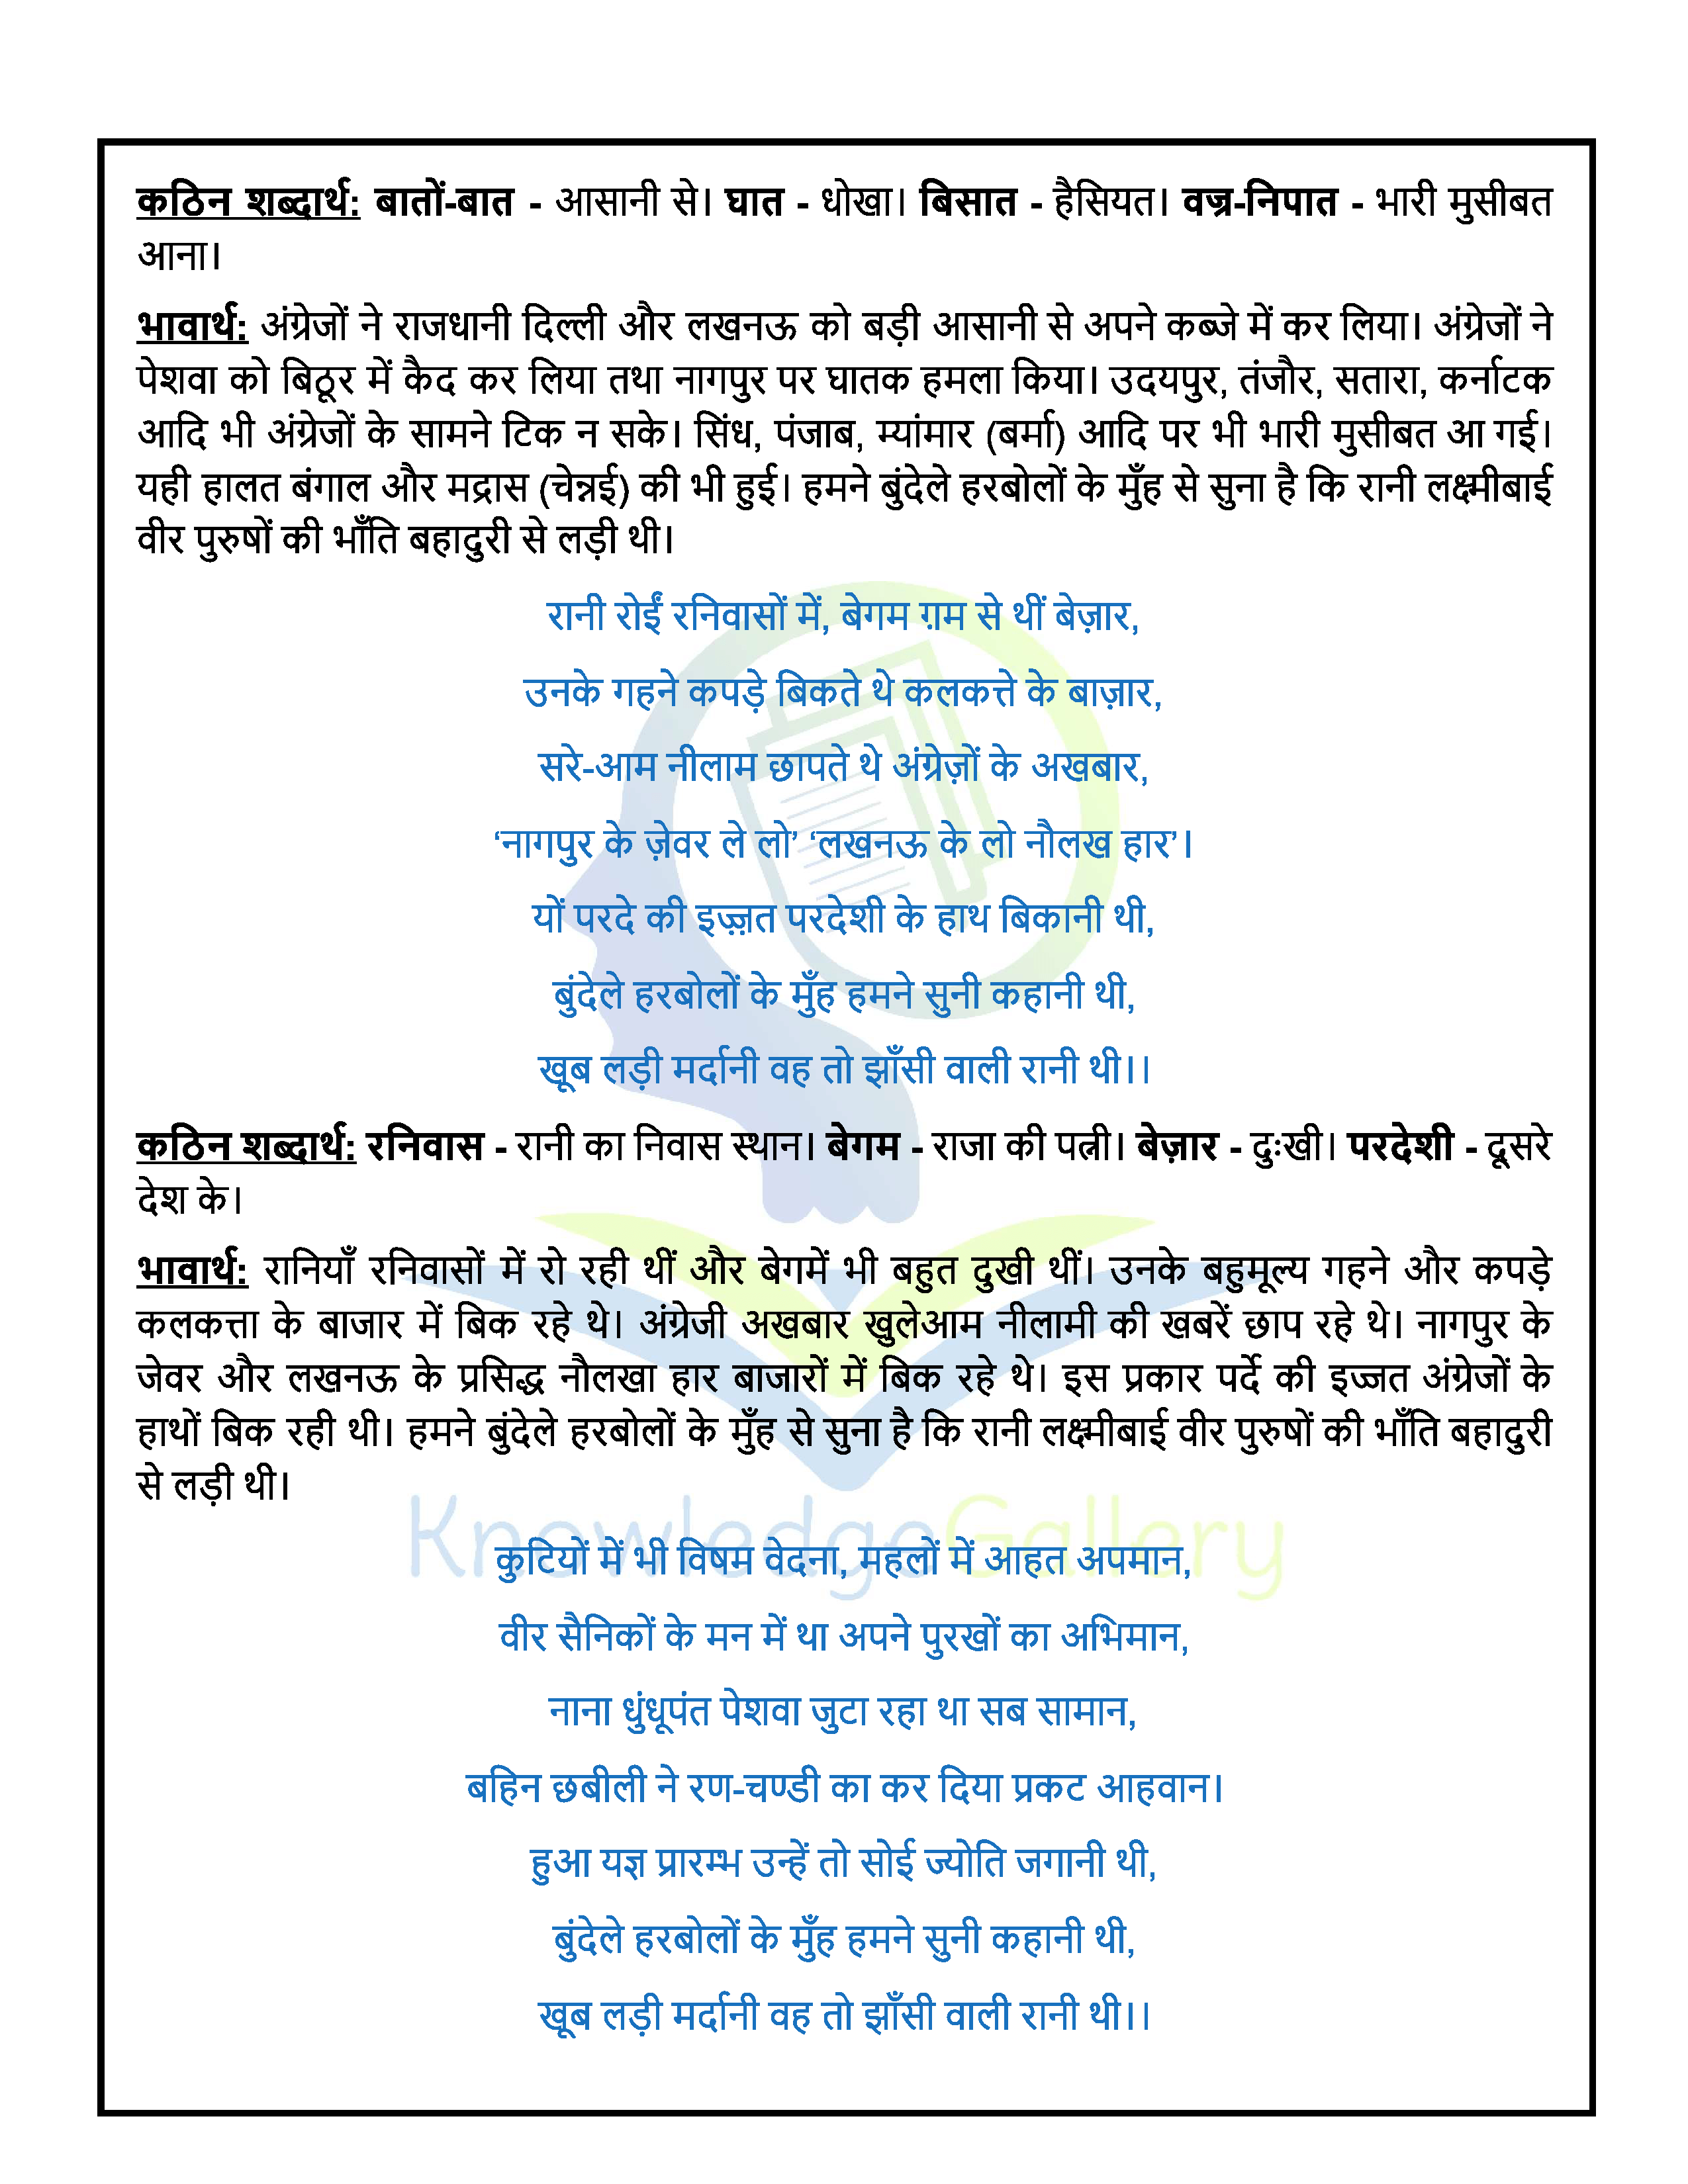 कठिन शब्दार्थ: बातों-बात - आसानी से। घात - धोखा। बिसात - हैसियत। वज्र-निपात - भारी मुसीबत
आना।
भावार्थ: अंग्रेजों ने राजधानी दिल्ली और लखनऊ को बड़ी आसानी से अपने कब्जे में कर लिया। अंग्रेजों ने
पेशवा को बिठूर में कैद कर लिया तथा नागपुर पर घातक हमला किया। उदयपुर, तंजौर, सतारा, कर्नाटक
आदि भी अंग्रेजों के सामने टिक न सके। सिंध, पंजाब, म्यांमार (बर्मा) आदि पर भी भारी मुसीबत आ गई।
यही हालत बंगाल और मद्रास (चेन्नई) की भी हुई। हमने बुंदेले हरबोलों के मुँह से सुना है कि रानी लक्ष्मीबाई
वीर पुरुषों की भाँति बहादुरी से लड़ी थी।
रानी रोईं रनिवासों में, बेगम ग़म से थीं बेज़ार,
उनके गहने कपड़े बिकते थे कलकत्ते के बाज़ार,
सरे-आम नीलाम छापते थे अंग्रेज़ों के अखबार,
‘नागपुर के ज़ेवर ले लो’ ‘लखनऊ के लो नौलख हार’।
यों परदे की इज़्ज़त परदेशी के हाथ बिकानी थी,
बुंदेले हरबोलों के मुँह हमने सुनी कहानी थी,
खूब लड़ी मर्दानी वह तो झाँसी वाली रानी थी।।
कठिन शब्दार्थ: रनिवास - रानी का निवास स्थान। बेगम - राजा की पत्नी। बेज़ार - दुःखी। परदेशी - दूसरे
देश के।
भावार्थ: रानियाँ रनिवासों में रो रही थीं और बेगमें भी बहुत दुखी थीं। उनके बहुमूल्य गहने और कपड़े
कलकत्ता के बाजार में बिक रहे थे। अंग्रेजी अखबार खुलेआम नीलामी की खबरें छाप रहे थे। नागपुर के
जेवर और लखनऊ के प्रसिद्ध नौलखा हार बाजारों में बिक रहे थे। इस प्रकार पर्दे की इज्जत अंग्रेजों के
हाथों बिक रही थी। हमने बुंदेले हरबोलों के मुँह से सुना है कि रानी लक्ष्मीबाई वीर पुरुषों की भाँति बहादुरी
से लड़ी थी।
KnowledgeGallery
कुटियों में भी विषम वेदना, महलों में आहत अपमान,
वीर सैनिकों के मन में था अपने पुरखों का अभिमान,
नाना धुंधूपंत पेशवा जुटा रहा था सब सामान,
बहिन छबीली ने रण-चण्डी का कर दिया प्रकट आहवान।
हुआ यज्ञ प्रारम्भ उन्हें तो सोई ज्योति जगानी थी,
बुंदेले हरबोलों के मुँह हमने सुनी कहानी थी,
खूब लड़ी मर्दानी वह तो झाँसी वाली रानी थी।।